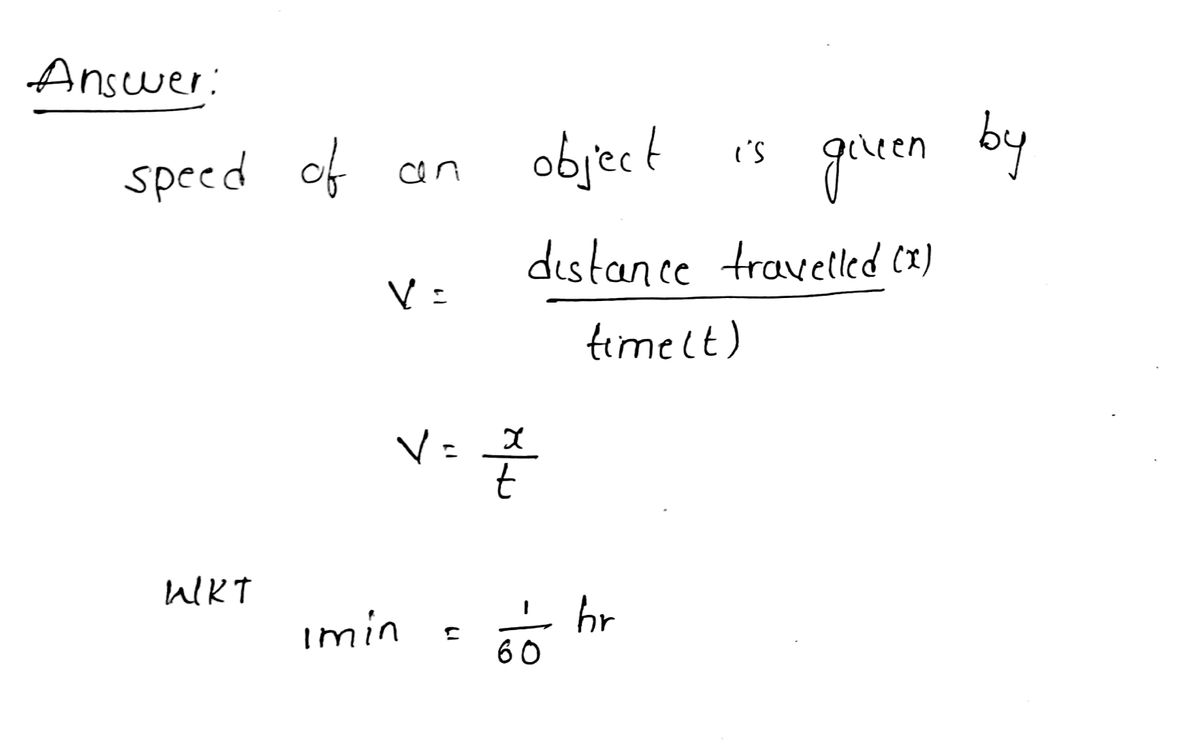 Answer:
speed of an object is given by
V = distance travelled (x)
time (t)
V = x
t
WKT
1min = 1 hr
60